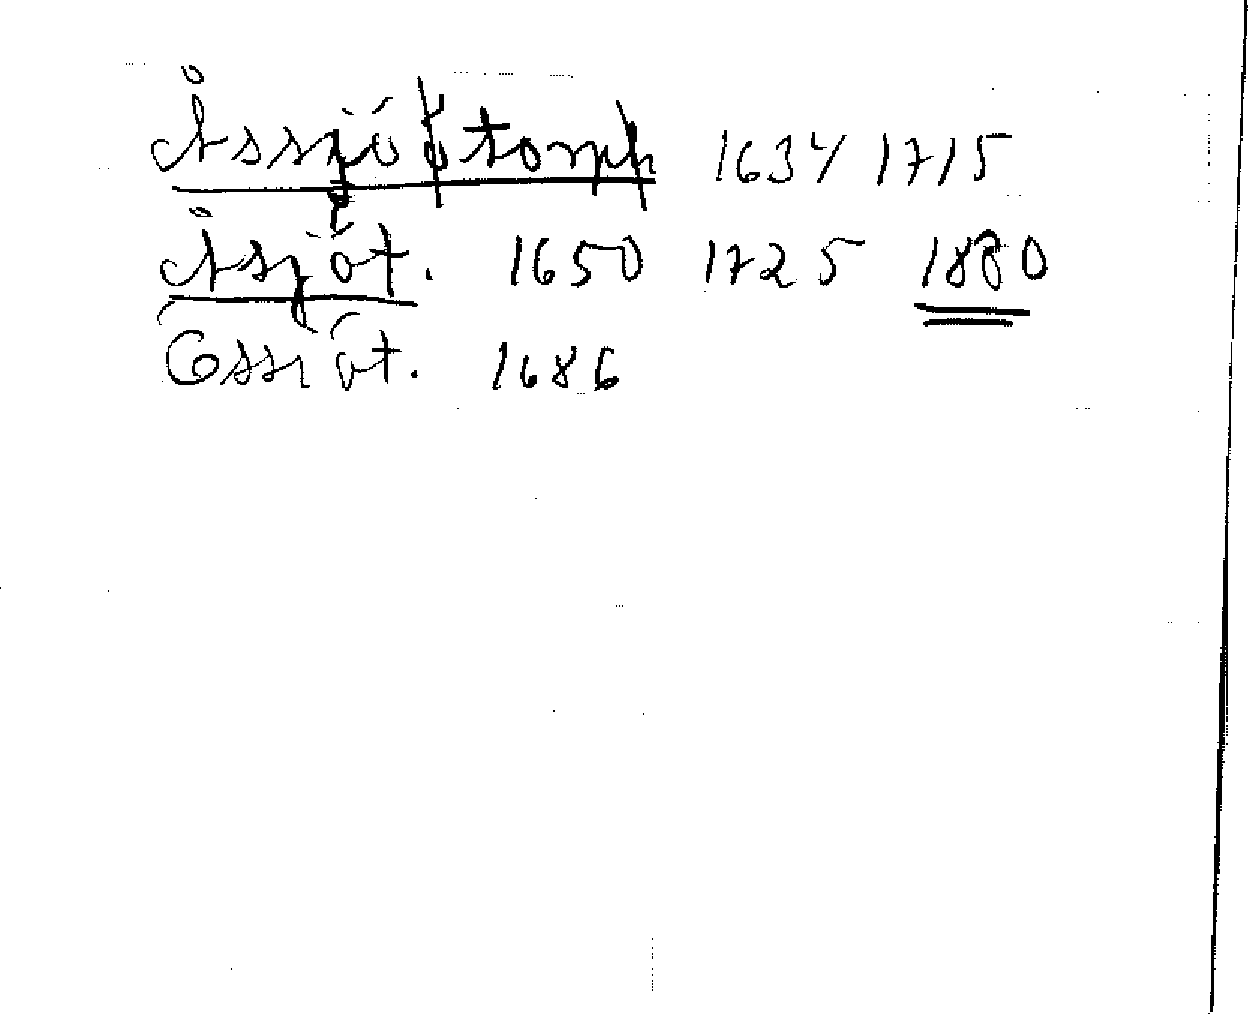 Åssjö torp 1634 1715
Åsjöt. 1650 1725 1880
Össiöt. 1686